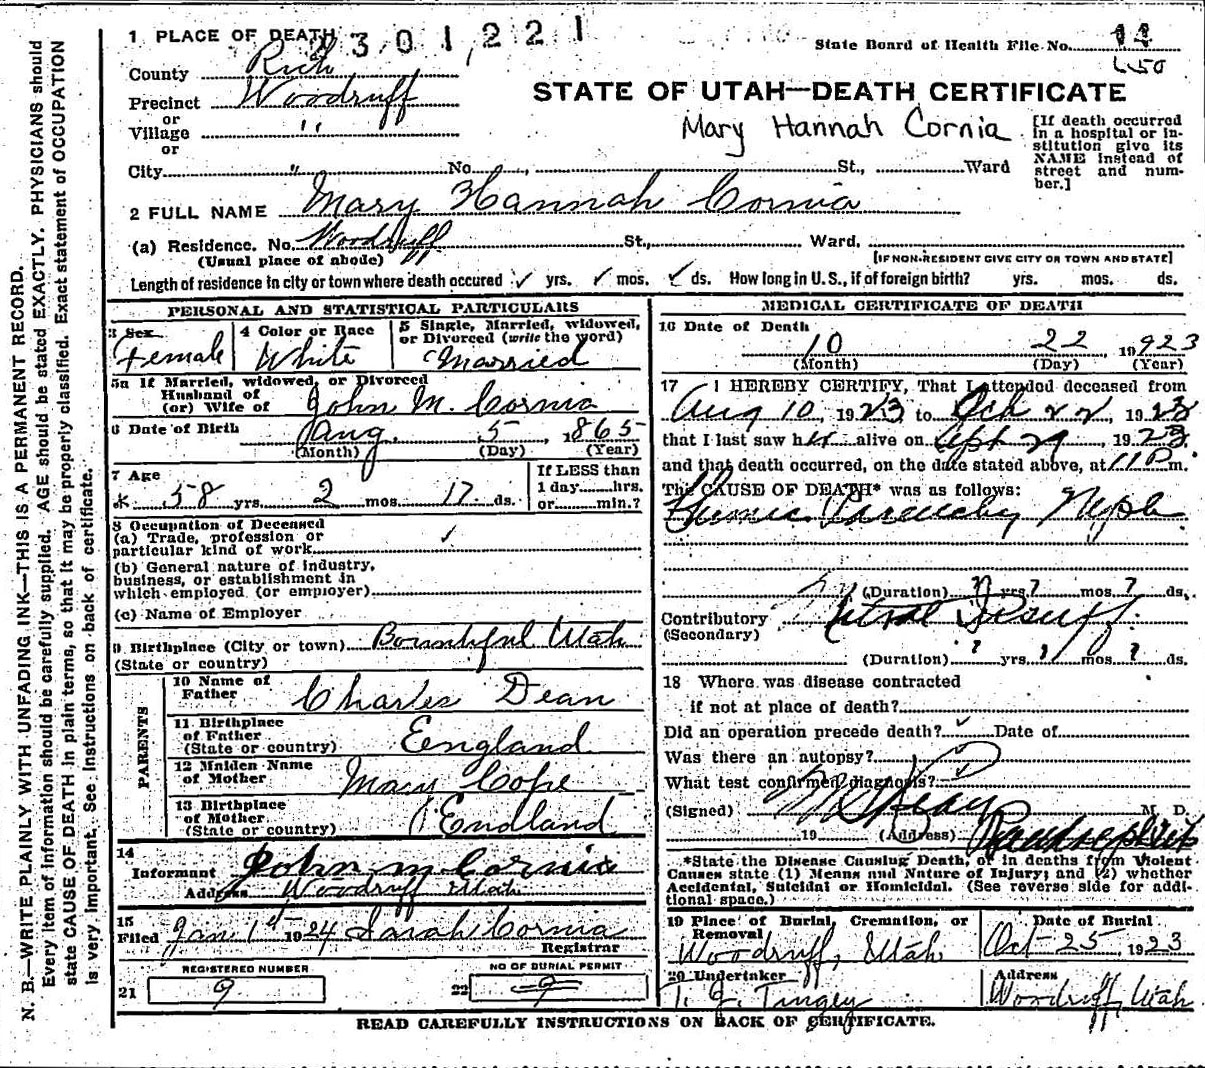 1 PLACE OF DEATH 2301221
State Board of Health File No. 14
650
County Rich
Precinct Woodruff
or
Village "
or
STATE OF UTAH—DEATH CERTIFICATE
Mary Hannah Cornia
[If death occurred in a hospital or institution give its NAME instead of street and number.]
City " No. St., Ward
2 FULL NAME Mary Hannah Cornia
(a) Residence. No. Woodruff St., Ward.
(Usual place of abode) [IF NON-RESIDENT GIVE CITY OR TOWN AND STATE]
Length of residence in city or town where death occured ✓ yrs. ✓ mos. ✓ ds. How long in U.S., if of foreign birth? yrs. mos. ds.
PERSONAL AND STATISTICAL PARTICULARS
3 Sex Female
4 Color or Race White
5 Single, Married, widowed, or Divorced (write the word) Married
5a If Married, widowed, or Divorced
Husband of
(or) Wife of John M. Cornia
6 Date of Birth 5, 1865
(Month) (Day) (Year)
7 Age
58 yrs. 2 mos. 17 ds.
If LESS than
1 day hrs.
or min.?
8 Occupation of Deceased
(a) Trade, profession or
particular kind of work ✓
(b) General nature of industry,
business, or establishment in
which employed (or employer)
(c) Name of Employer
9 Birthplace (City or town) Bountiful Utah
(State or country)
PARENTS
10 Name of Father Charles Dean
11 Birthplace of Father (State or country) England
12 Maiden Name of Mother Mary Cope
13 Birthplace of Mother (State or country) Endland
14
Informant John M Cornia
Address Woodruff Utah
15
Filed Jan 1st 1924 Sarah Cornia
Registrar
REGISTERED NUMBER
21 9
NO OF BURIAL PERMIT
22 9
MEDICAL CERTIFICATE OF DEATH
16 Date of Death
10 22, 1923
(Month) (Day) (Year)
17 I HEREBY CERTIFY, That I attended deceased from
Aug 10, 1923 to Oct 22, 1923
that I last saw her alive on Sept 29, 1923
and that death occurred, on the date stated above, at 11 P m.
The CAUSE OF DEATH* was as follows:
(Duration) ? yrs ? mos. ? ds.
Contributory Mitral
(Secondary)
(Duration) ? yrs. mos ? ds.
18 Where was disease contracted
if not at place of death?
Did an operation precede death? ✓ Date of
Was there an autopsy?
What test confirmed diagnosis?
(Signed) M. D.
19 (Address) Randolph Utah
*State the Disease Causing Death, or in deaths from Violent
Causes state (1) Means and Nature of Injury; and (2) whether
Accidental, Suicidal or Homicidal. (See reverse side for additional space.)
19 Place of Burial, Cremation, or Removal
Woodruff, Utah
Date of Burial
Oct 25, 1923
20 Undertaker
T. J. Tingey
Address
Woodruff, Utah
READ CAREFULLY INSTRUCTIONS ON BACK OF CERTIFICATE.
N. B.—WRITE PLAINLY WITH UNFADING INK—THIS IS A PERMANENT RECORD.
Every item of information should be carefully supplied. AGE should be stated EXACTLY. PHYSICIANS should
state CAUSE OF DEATH in plain terms, so that it may be properly classified. Exact statement of OCCUPATION
is very important. See instructions on back of certificate.